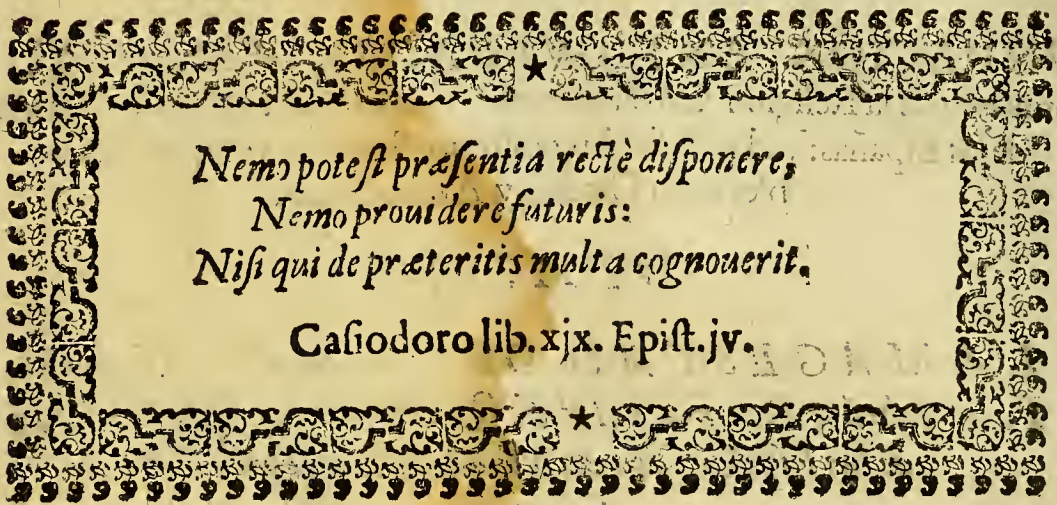 Nemo poteſt præſentia rectè diſponere,
Nemo prouidere futuris:
Niſi qui de præteritis multa cognouerit.
Caſiodoro lib. xjx. Epiſt. jv.